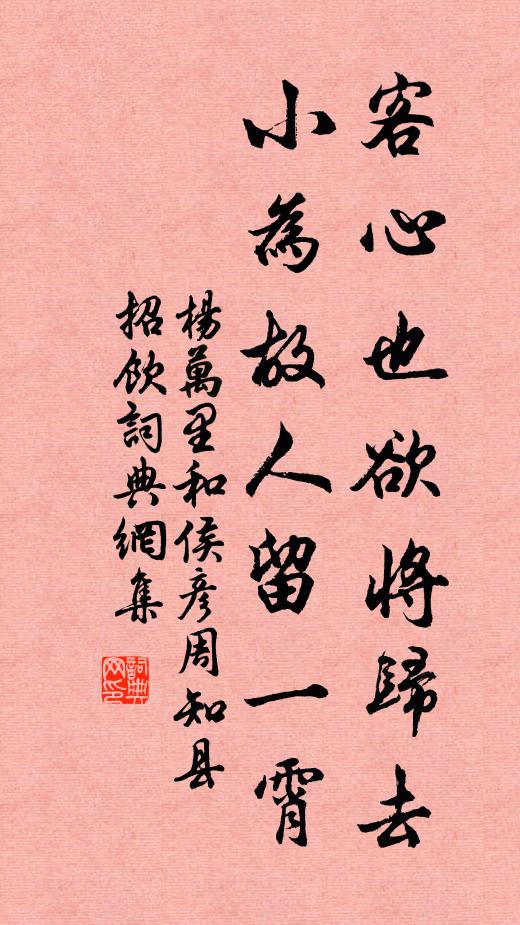 客心也欲将歸去
小為故人留一霄
楊萬里和侯彦周知县
招飲詞典網集
詞典
网印